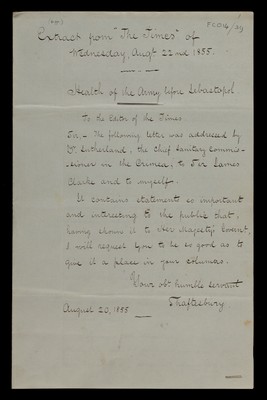 Extract from "The Times" of
Wednesday, Augt 22nd 1855.
Health of the Army before Sebastopol
To the Editor of the Times
Sir, - The following letter was addressed by
Dr. Sutherland, the Chief Sanitary Commis-
-sioner in the Crimea, to Sir James
Clarke and to myself.
It contains statements so important
and interesting to the public that,
having shown it to Her Majesty's Governt,
I will request you to be so good as to
give it a place in your columns.
Your obt humble servant
Shaftesbury
August 20, 1855